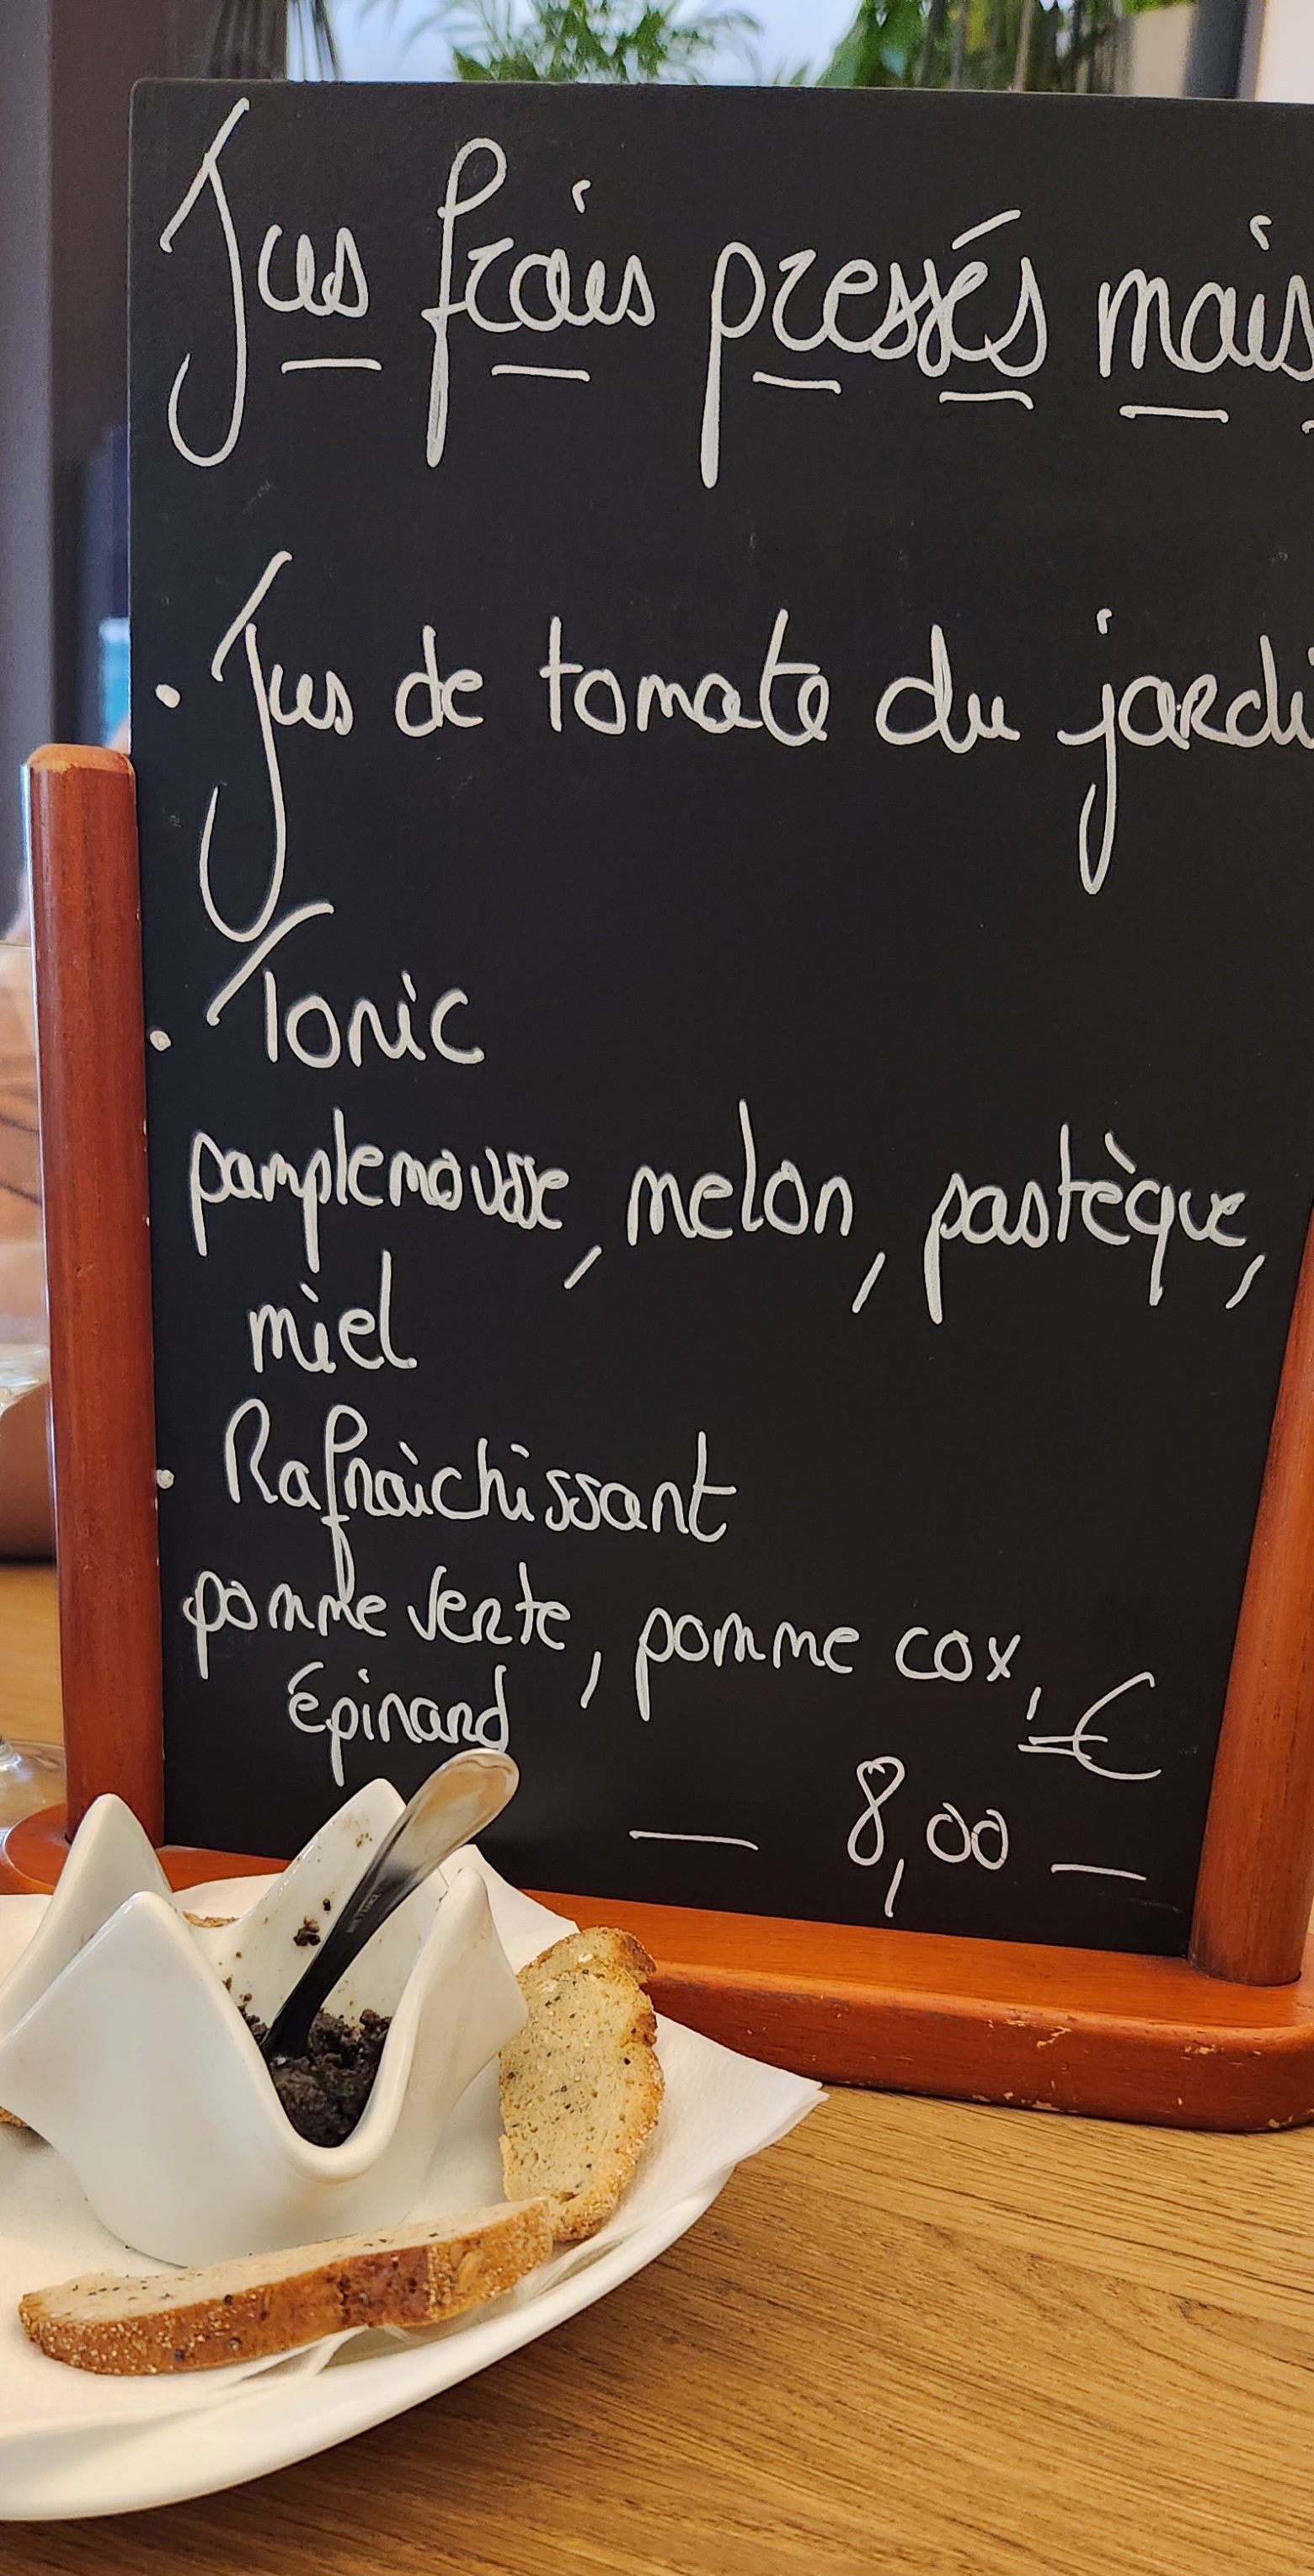 Jus frais pressés mais
• Jus de tomate du jardi
• Tonic
pamplemousse, melon, pastèque,
miel
• Rafraichissant
pomme verte, pomme cox,
épinard
€
— 8,00 —